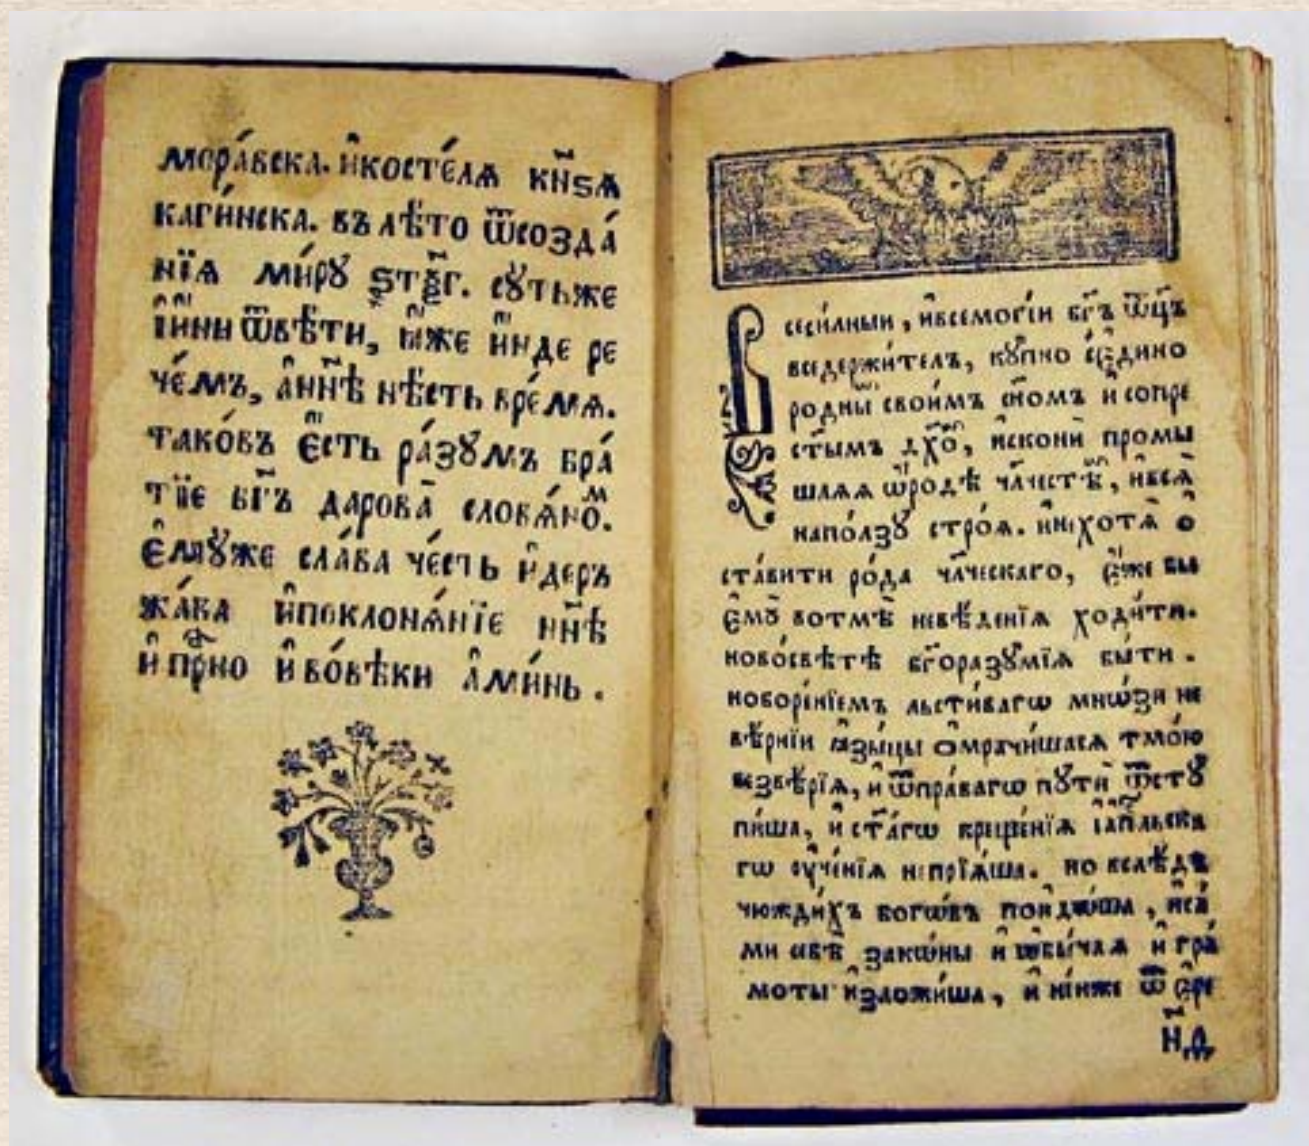 мора́вска. и҆костелѧ кн҃ѕѧ
каги́нска. въ лѣ́то ѿсозда́
нїѧ ми́рꙋ ѕт҃ѯг. сꙋть же
и҆и҆ни ѿвѣ́ти, ꙗ҆́же и҆́нде ре
че́мъ, а҆нн҃ѣ нѣ́сть вре́мѧ.
тако́въ є҆́сть ра́зꙋмъ бра́
тїе бг҃ъ дарова̀ словѧ́номⷨ.
є҆мꙋ́же сла́ва че́сть и҆дер
жа́ва и҆поклонѧ́нїе нн҃ѣ
и҆ пр҇но и҆во́вѣки а҆ми́нь.
Всеси́лныи, и҆всемогі́и бг҃ъ ѿц҃ъ
вседержи́тель, кꙋ́пно с꙾є҆дино
родны́ⷨ свои́мъ сн҃омъ и҆ сопре
ст҃ымъ дх҃оⷨ, и҆сконѝ промы
шлѧѧ ѡ҆ро́дѣ чл҃честѣⷨ, и҆всѧ̀
напо́лзꙋ стро́ѧ. и҆нехотѧ̀ о҆
ста́вити ро́да чл҃ческаго, є҆́же бы
є҆мꙋ̀ вотмѣ̀ невѣ́денїѧ ходи́ти.
новосвѣ́тѣ бг҃оразꙋмїѧ бы́ти.
ноборе́нїемъ льсти́вагѡ мнѡ́зи не
вѣ́рнїи ꙗ҆зы́цы ѡ҆мрачи́шасѧ тмо́ю
безвѣ́рїѧ, и҆ ѿпра́вагѡ пꙋтѝ ѿстꙋ
пи́ша, и҆ ст҃а́гѡ креще́нїѧ і҆а҆пⷭ҇льска
гѡ ᲂу҆че́нїѧ непрїѧ́ша. но вслѣ́дъ
чюжди́хъ богѡ́въ поидо́ша, и҆са́
ми себѣ̀ зако́ны и҆ ѡ҆бы́чаѧ и҆ гра́
моты и҆зложи́ша, и҆ не́иже ѿ є҆ре